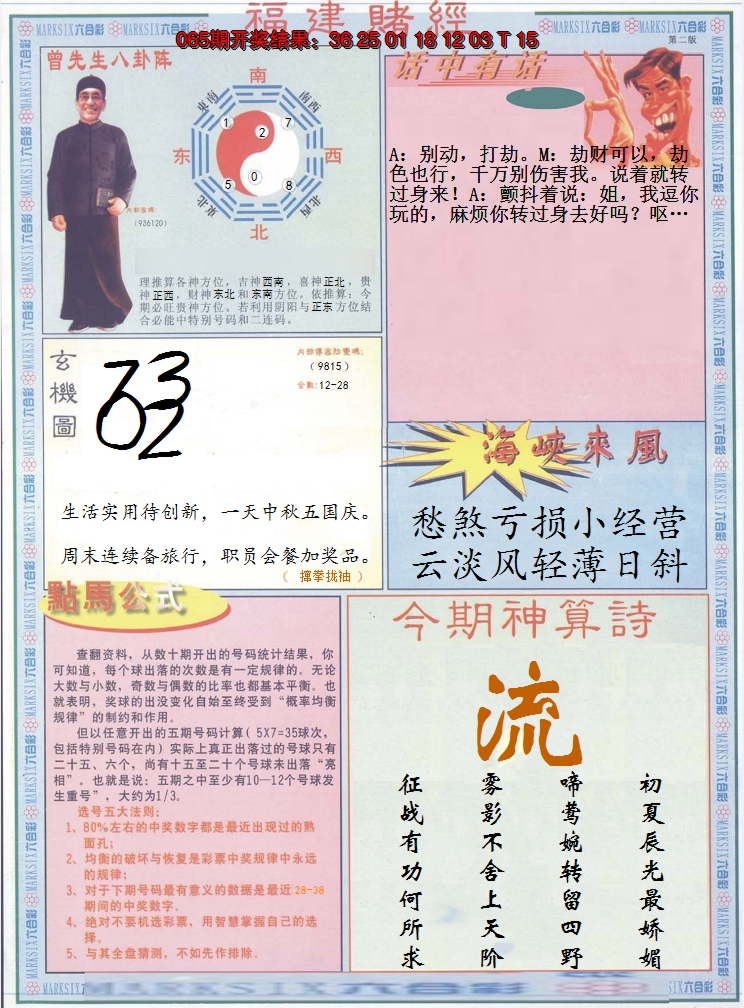 福建賭經
065期开奖结果：36 25 01 18 12 03 T 15
第二版
曾先生八卦阵
南
东南
南西
1
2
7
东
西
5
0
8
東北
北西
北
内部密碼：
（936120）
理推算各神方位，吉神西南，喜神正北，贵
神正西，财神东北和东南方位。依推算：今
期必旺贵神方位。若利用阴阳与正东方位结
合必能中特别号码和二连码。
话中有话
A：别动，打劫。M：劫财可以，劫
色也行，千万别伤害我。说着就转
过身来！A：颤抖着说：姐，我逗你
玩的，麻烦你转过身去好吗？呕…
玄機圖
（9815）
合数:12-28
生活实用待创新，一天中秋五国庆。
周末连续备旅行，职员会餐加奖品。
（ 攞拳拢袖 ）
海峽來風
愁煞亏损小经营
云淡风轻薄日斜
點馬公式
查翻资料，从数十期开出的号码统计结果，你
可知道，每个球出落的次数是有一定规律的。无论
大数与小数，奇数与偶数的比率也都基本平衡。也
就表明，奖球的出没变化自始至终受到“概率均衡
规律”的制约和作用。
但以任意开出的五期号码计算（5X7=35球次，
包括特别号码在内）实际上真正出落过的号球只有
二十五、六个，尚有十五至二十个号球未出落“亮
相”。也就是说：五期之中至少有10—12个号球发
生重号”，大约为1/3。
选号五大法则：
1、80%左右的中奖数字都是最近出现过的熟
面孔；
2、均衡的破坏与恢复是彩票中奖规律中永远
的规律；
3、对于下期号码最有意义的数据是最近28-38
期间的中奖数字。
4、绝对不要机选彩票，用智慧掌握自己的选
择。
5、与其全盘猜测，不如先作排除。
今期神算詩
流
初夏辰光最娇媚
啼莺婉转留四野
雾影不舍上天阶
征战有功何所求
MARKSIX六合彩